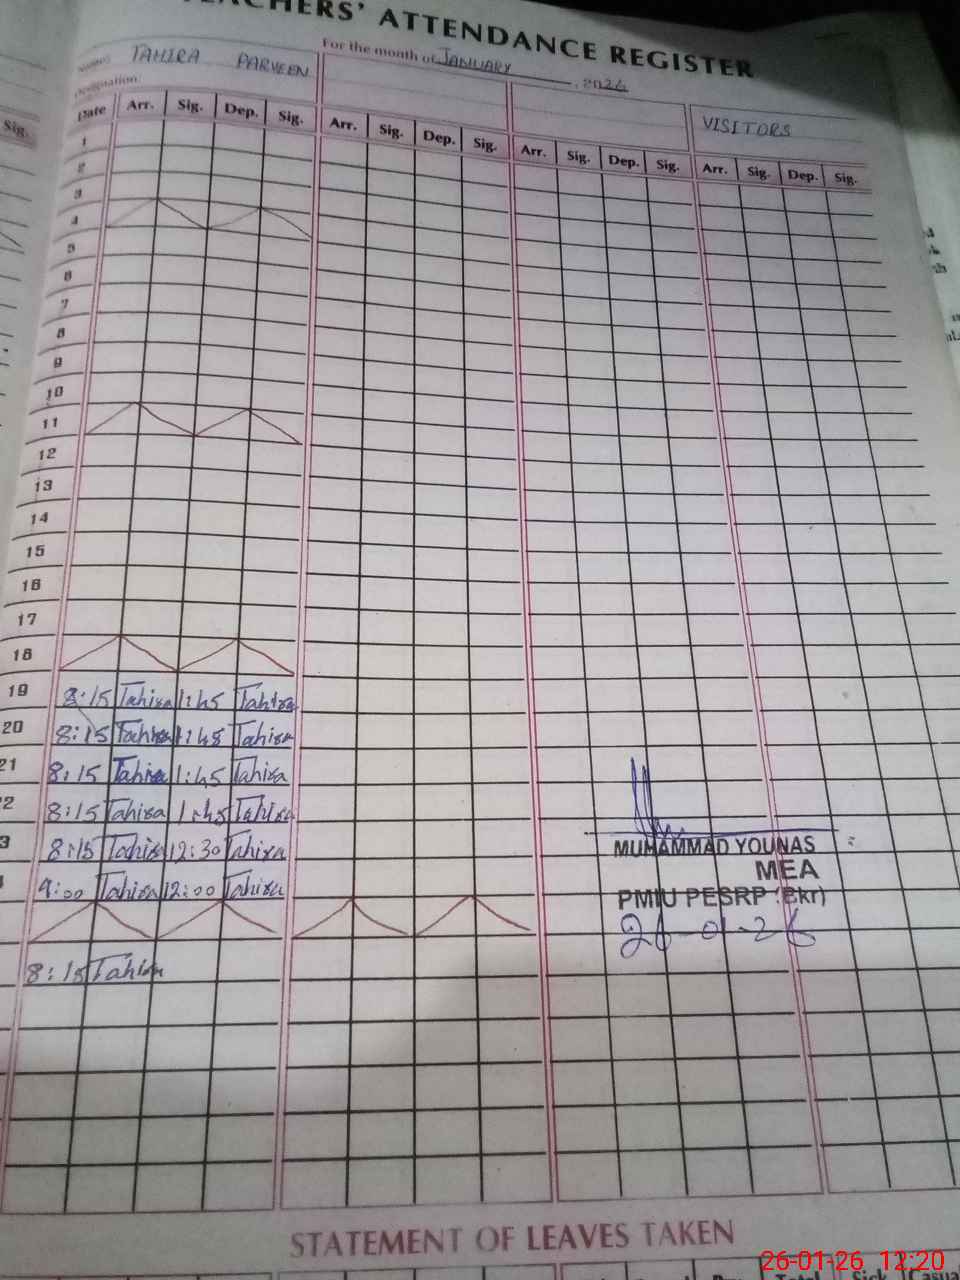 TEACHERS' ATTENDANCE REGISTER
Name: TAHIRA PARVEEN For the month of JANUARY, 2026
Designation
VISITORS
Date Arr. Sig. Dep. Sig. Arr. Sig. Dep. Sig. Arr. Sig. Dep. Sig. Arr. Sig. Dep. Sig.
1
2
3
4
5
6
7
8
9
10
11
12
13
14
15
16
17
18
19 8:15 Tahira 1:45 Tahira
20 8:15 Tahira 1:45 Tahira
21 8:15 Tahira 1:45 Tahira
22 8:15 Tahira 1:45 Tahira
3 8:15 Tahira 12:30 Tahira
9:00 Tahira 12:00 Tahira
8:15 Tahira
MUHAMMAD YOUNAS
MEA
PMIU PESRP (Bkr)
26-01-26
STATEMENT OF LEAVES TAKEN
26-01-26 12:20